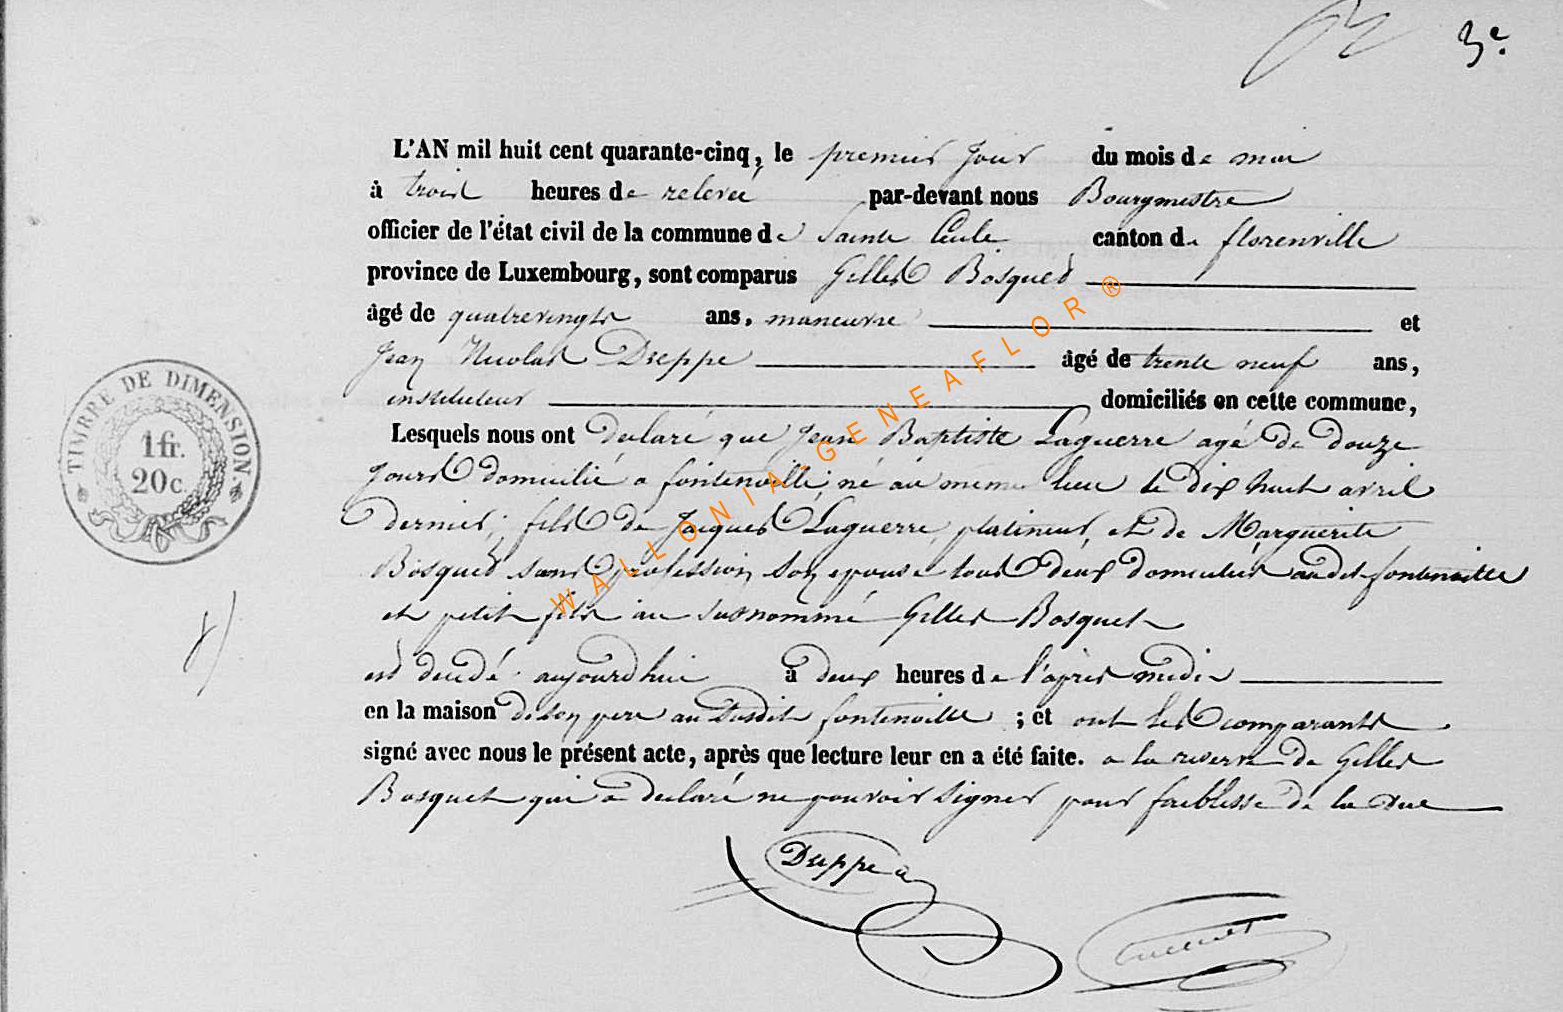 3e.
L'AN mil huit cent quarante-cinq, le premier jour du mois de mai
à trois heures de relevée par-devant nous Bourgmestre
officier de l'état civil de la commune de Sainte Cécile canton de florenville
province de Luxembourg, sont comparus Gilles Bosquet
âgé de quatrevingts ans, maneuvre et
Jean Nicolas Dreppe âgé de trente neuf ans,
instituteur domiciliés en cette commune,
Lesquels nous ont déclaré que Jean Baptiste Laguerre agé de douze
jours domicilié a fontenoille, né au même lieu le dix huit avril
dernier, fils de Jacques Laguerre, platineur, et de Marguerite
Bosquet sans profession son epouse tous deux domiciliés audit fontenoille
et petit fils au susnommé Gilles Bosquet
est décédé aujourdhui à deux heures de l'après midi
en la maison de son pere au susdit fontenoille ; et ont les comparants
signé avec nous le présent acte, après que lecture leur en a été faite. a la reserve de Gilles
Bosquet qui a declaré ne pouvoir signer pour faiblesse de la vue
Dreppe
TIMBRE DE DIMENSION.
1 fr.
20 c.
WALLONIA-GENEAFLOR ®